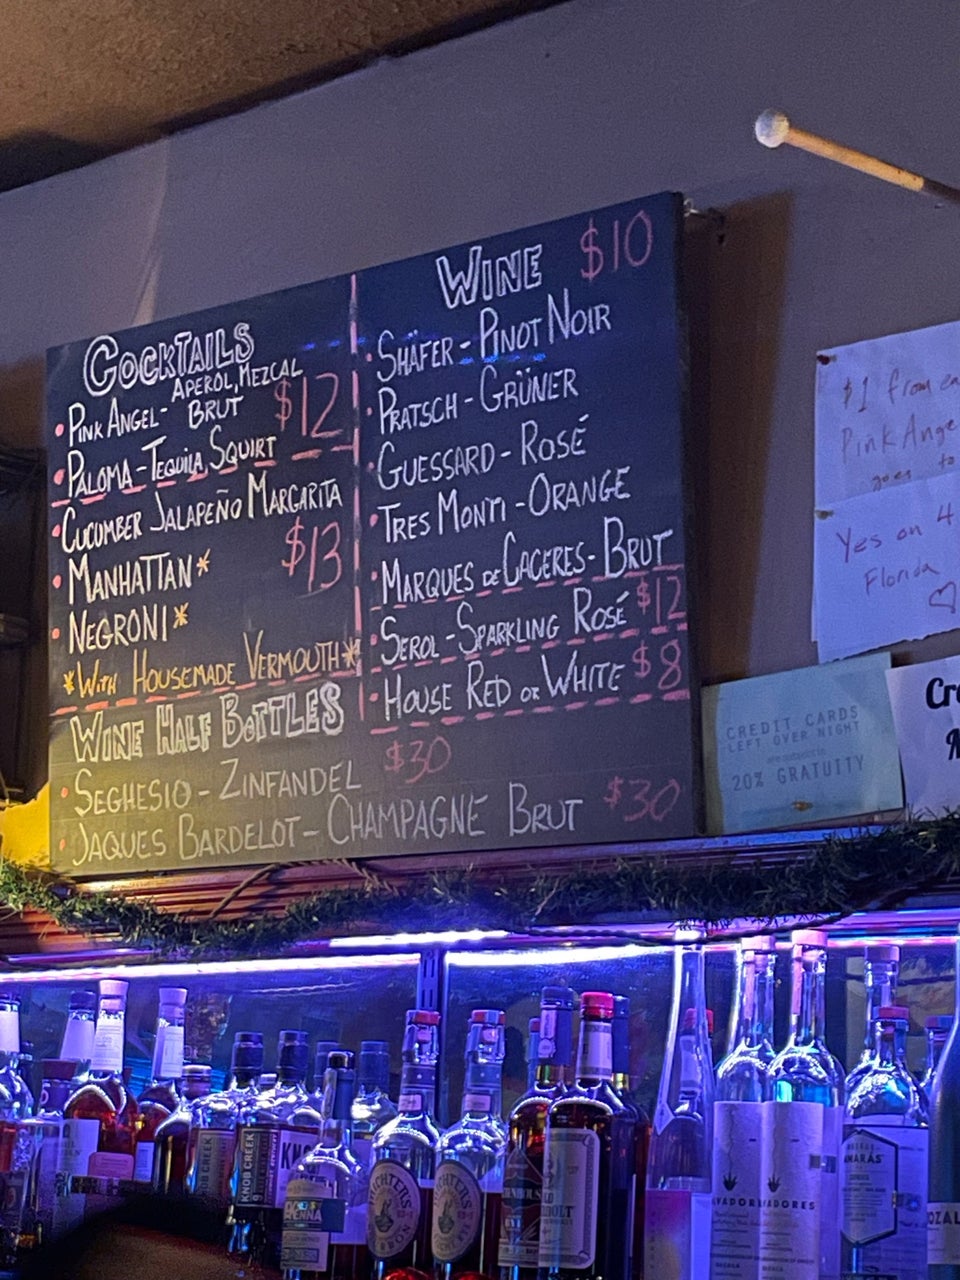 COCKTAILS
• PINK ANGEL- APEROL, MEZCAL
BRUT $12
• PALOMA-TEQUILA, SQUIRT
• CUCUMBER JALAPEÑO MARGARITA
• MANHATTAN* $13
• NEGRONI*
*WITH HOUSEMADE VERMOUTH*
WINE $10
• SHÄFER - PINOT NOIR
• PRATSCH - GRÜNER
• GUESSARD - ROSÉ
• TRES MONTI - ORANGE
• MARQUES DE CACERES - BRUT
• SEROL - SPARKLING ROSÉ $12
• HOUSE RED OR WHITE $8
WINE HALF BOTTLES
• SEGHESIO - ZINFANDEL $30
• JAQUES BARDELOT - CHAMPAGNE BRUT $30
$1 from
Pink
goes to
Yes on 4
Florida
CREDIT CARDS
LEFT OVER NIGHT
20% GRATUITY
KNOB CREEK
KNOB CREEK